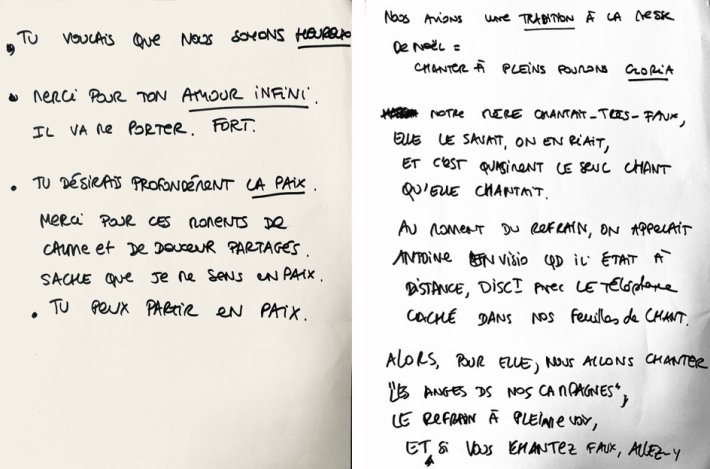 TU VOULAIS QUE NOUS SOYONS HEUREUX
MERCI POUR TON AMOUR INFINI.
IL VA ME PORTER. FORT.
TU DÉSIRAIS PROFONDÉMENT LA PAIX.
MERCI POUR CES MOMENTS DE
CALME et DE DOUCEUR PARTAGÉS.
SACHE QUE JE ME SENS EN PAIX.
TU PEUX PARTIR EN PAIX.
NOUS AVIONS UNE TRADITION À LA MESSE
DE NOËL =
CHANTER À PLEINS POUMONS GLORIA
NOTRE MÈRE CHANTAIT-TRES-FAUX,
ELLE LE SAVAIT, ON EN RIAIT,
ET C'EST QUASIMENT LE SEUL CHANT
QU'ELLE CHANTAIT.
AU MOMENT DU REFRAIN, ON APPELAIT
ANTOINE EN VISIO QD IL ÉTAIT À
DISTANCE, AVEC LE TÉLÉPHONE
CACHÉ DANS NOS Feuilles de CHANT.
ALORS, POUR ELLE, NOUS ALLONS CHANTER
"LES ANGES DS NOS CAMPAGNES",
LE REFRAIN À PLEINE VOIX,
ET SI VOUS CHANTEZ FAUX, ALLEZ-Y